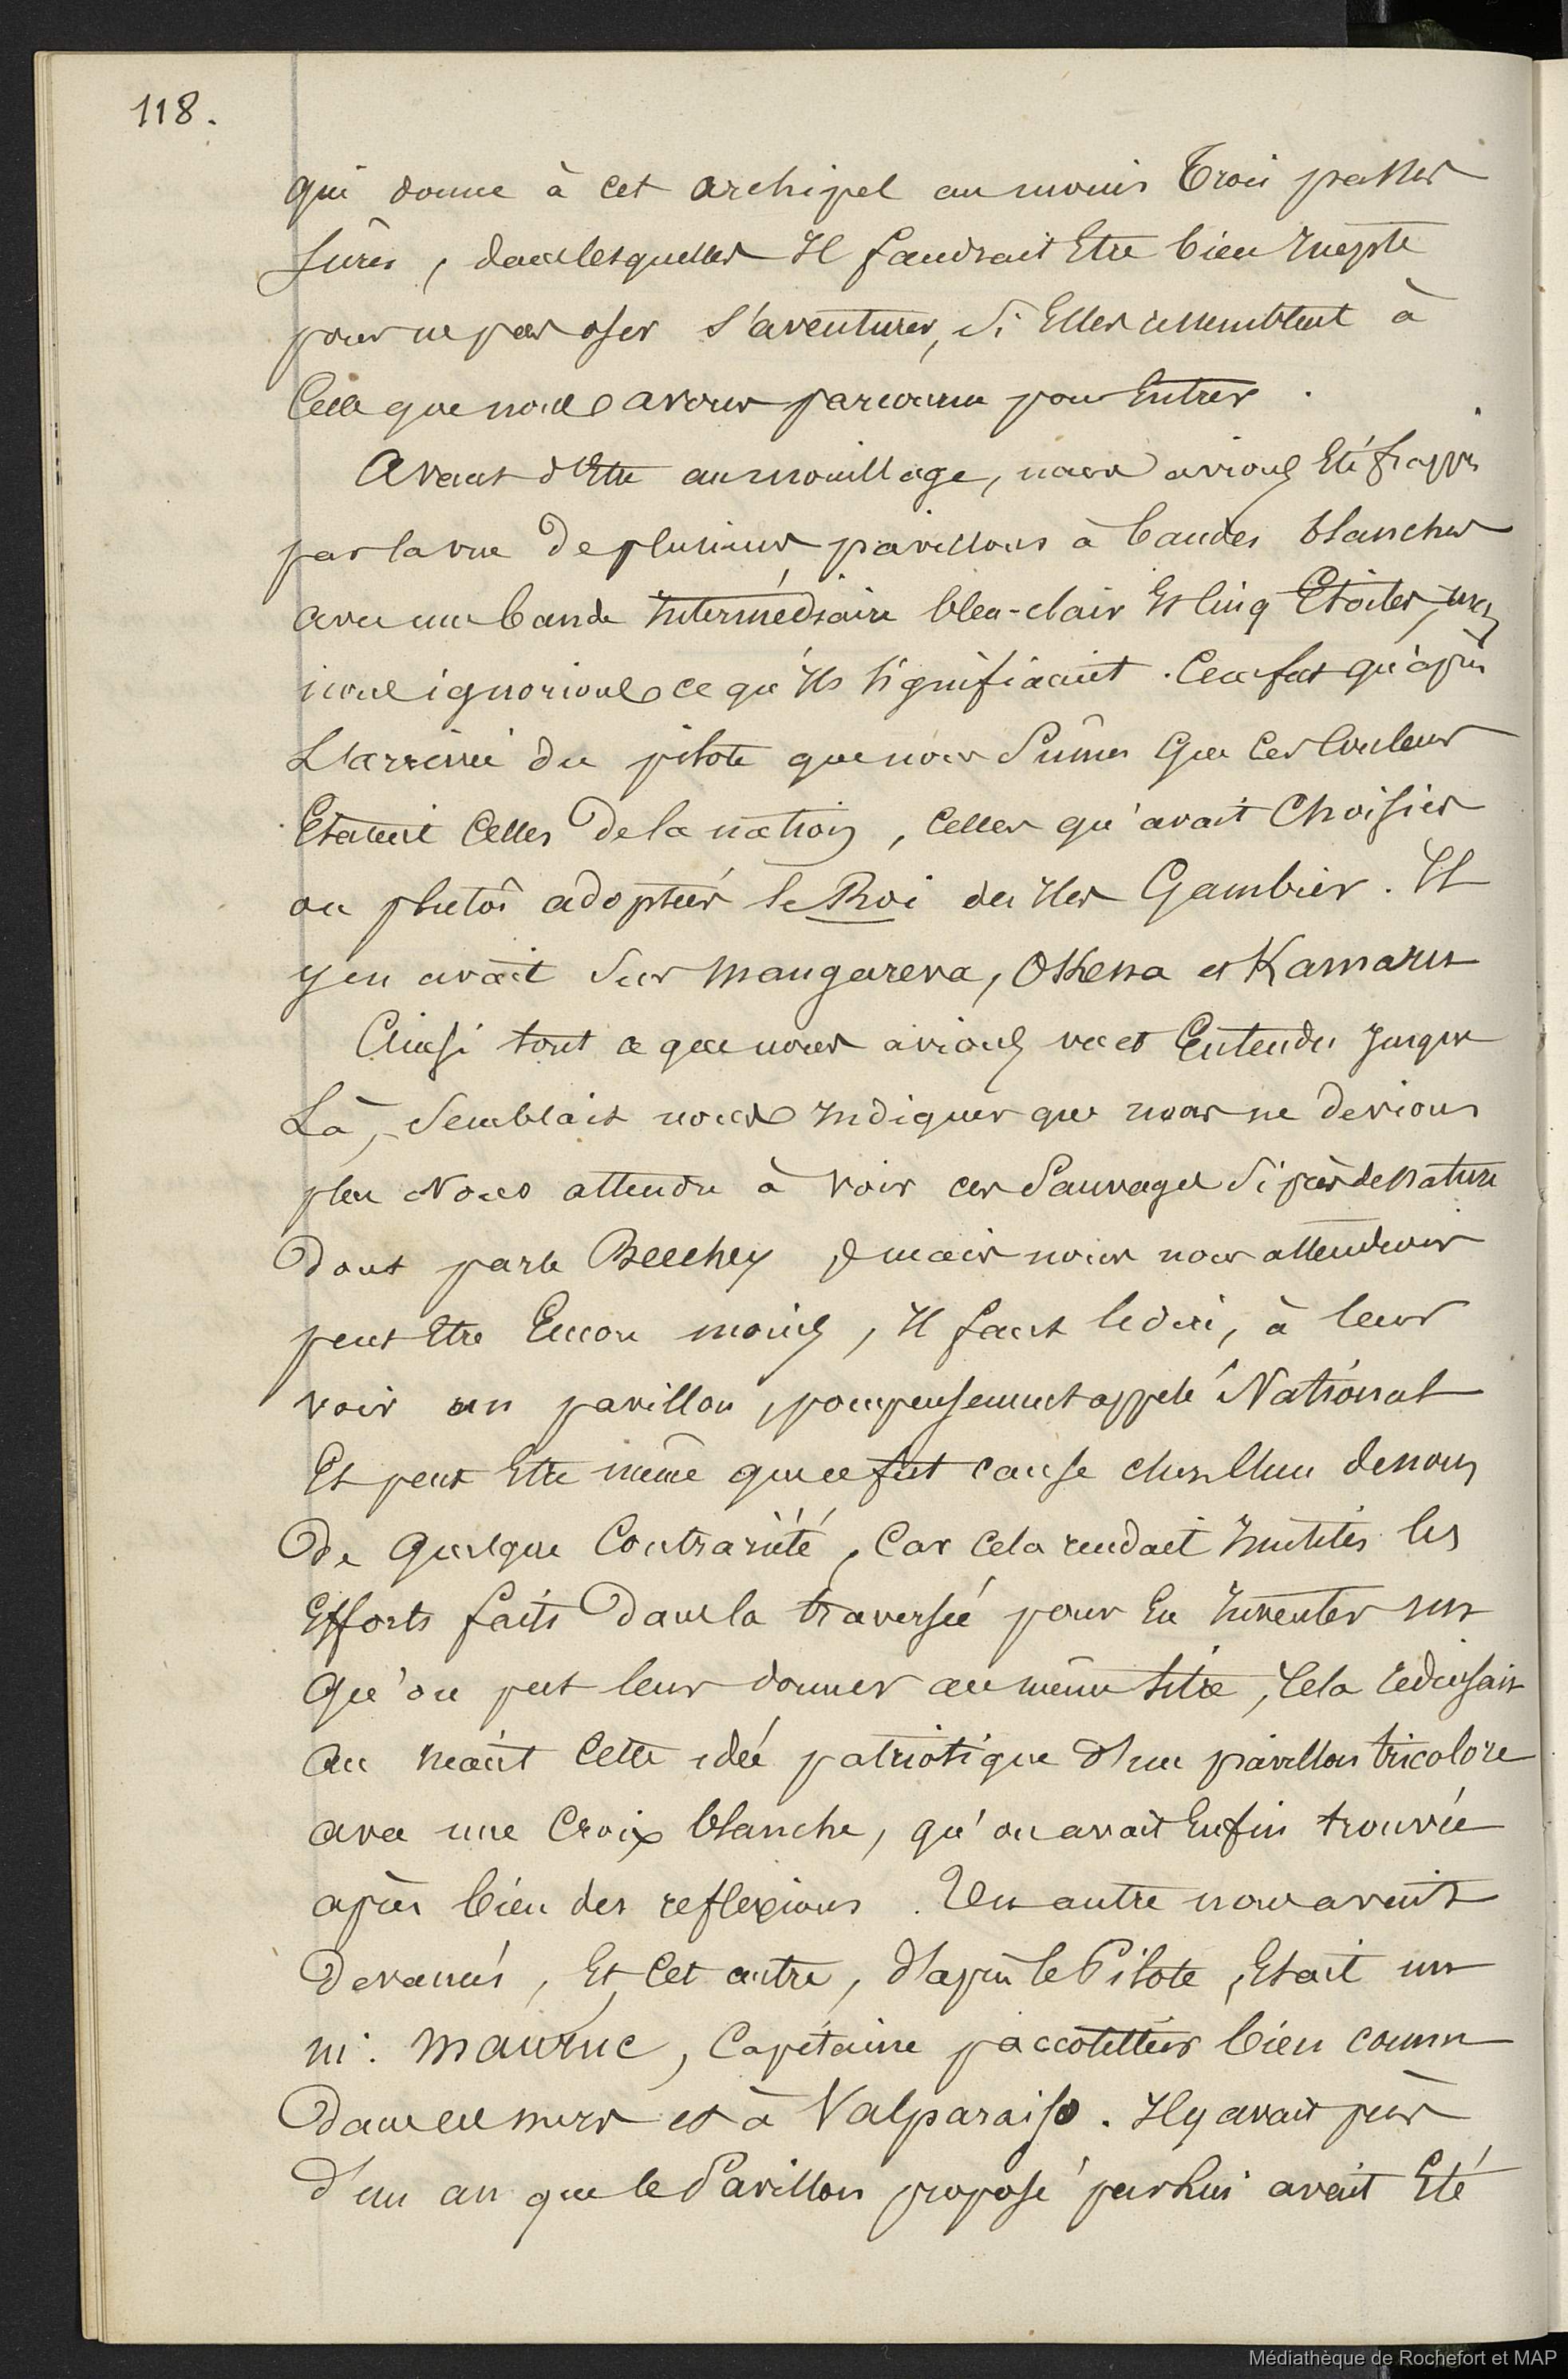 118.
qui donne à cet archipel au moins Trois passes
sûres, dans lesquelles Il faudrait Etre bien Inepte
pour ne pas oser s'aventurer, si Elles ressemblent à
Celle que nous avons parcourue pour Entrer.
Avant d'Etre au mouillage, nous avions Eté frappés
par la vue de plusieurs pavillons à bandes blanches
avec une bande Intermédiaire bleu-clair Et Cinq Etoiles,
nous ignorions ce qu'Ils signifiaient. Ce ne fut qu'après
L'arrivée du pilote que nous Sûmes Que Ces Couleurs
Etaient Celles de la nation, Celles qu'avait Choisies
ou plutôt adoptées le Roi des Iles Gambier. Il
y en avait Sur Mangareva, Okena et Kamaru
Ainsi tout ce que nous avions vu et Entendu Jusque
Là, Semblait nous Indiquer que nous ne devions
plus Nous attendre à voir ces Sauvages Si près de Nature
Dont parle Beechey, mais nous nous attendions
peut Etre Encore moins, Il faut le dire, à leur
voir un pavillon, pompeusement appelé National
Et peut Etre même que ce fut cause chez l'un de nous
De Quelque Contrariété, Car Cela rendait Inutiles les
Efforts faits Dans la traversée pour En Inventer un
Qu'on put leur donner au même titre, Cela réduisait
Au néant Cette idée patriotique d'un pavillon tricolore
avec une Croix blanche, qu'on avait Enfin trouvée
après bien des reflexions. Un autre nous avait
Devancés, Et Cet autre, d'après le Pilote, Etait un
M. Mauruc, Capitaine paccotilleur bien connu
Dans ces mers et à Valparaiso. Il y avait près
d'un an que le Pavillon proposé par Lui avait Eté
Médiathèque de Rochefort et MAP